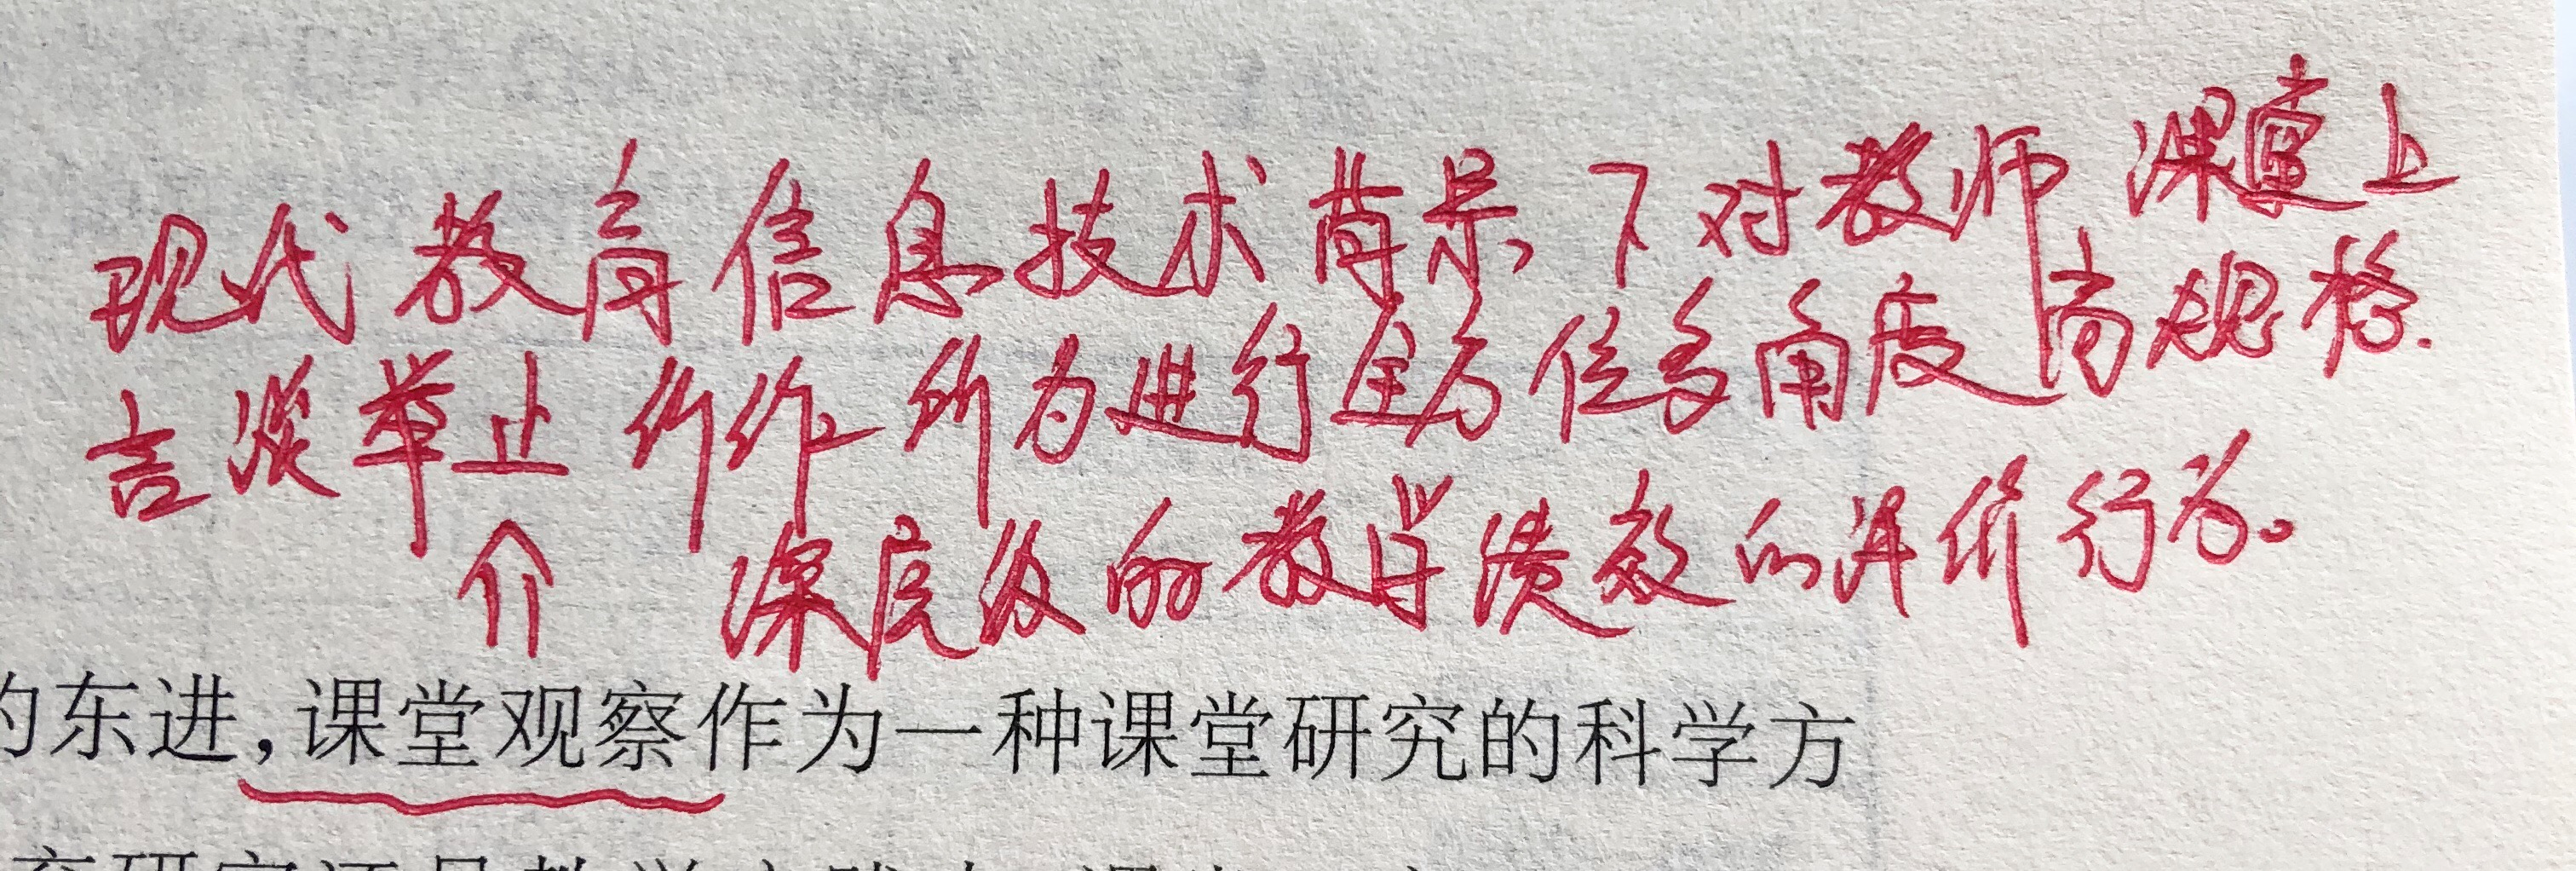 现代教育信息技术背景下对教师课堂上
言谈举止所作所为进行全方位多角度高规格.
深层级的教学绩效的评价行为。
的东进,课堂观察作为一种课堂研究的科学方